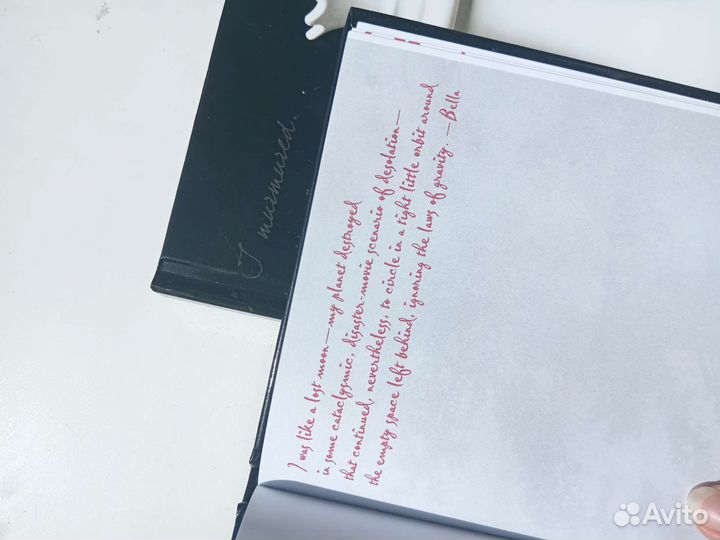 I murmured.
I was like a lost moon—my planet destroyed
in some cataclysmic, disaster-movie scenario of desolation—
that continued, nevertheless, to circle in a tight little orbit around
the empty space left behind, ignoring the laws of gravity. —Bella
Avito